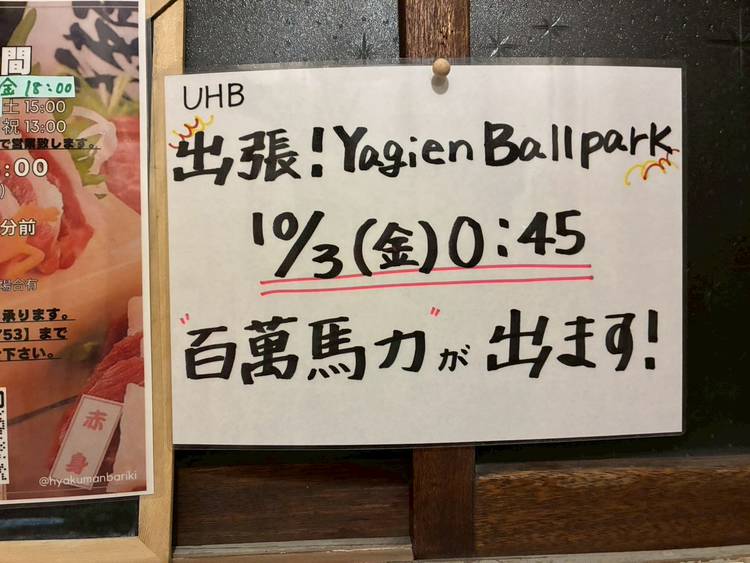 間
金 18:00
土 15:00
祝 13:00
で営業致します。
:00
)
分前
場合有
承ります。
53】まで
下さい。
赤身
@hyakumanbariki
UHB
出張!Yagien Ballpark
10/3(金)0:45
"百萬馬力"が出ます!